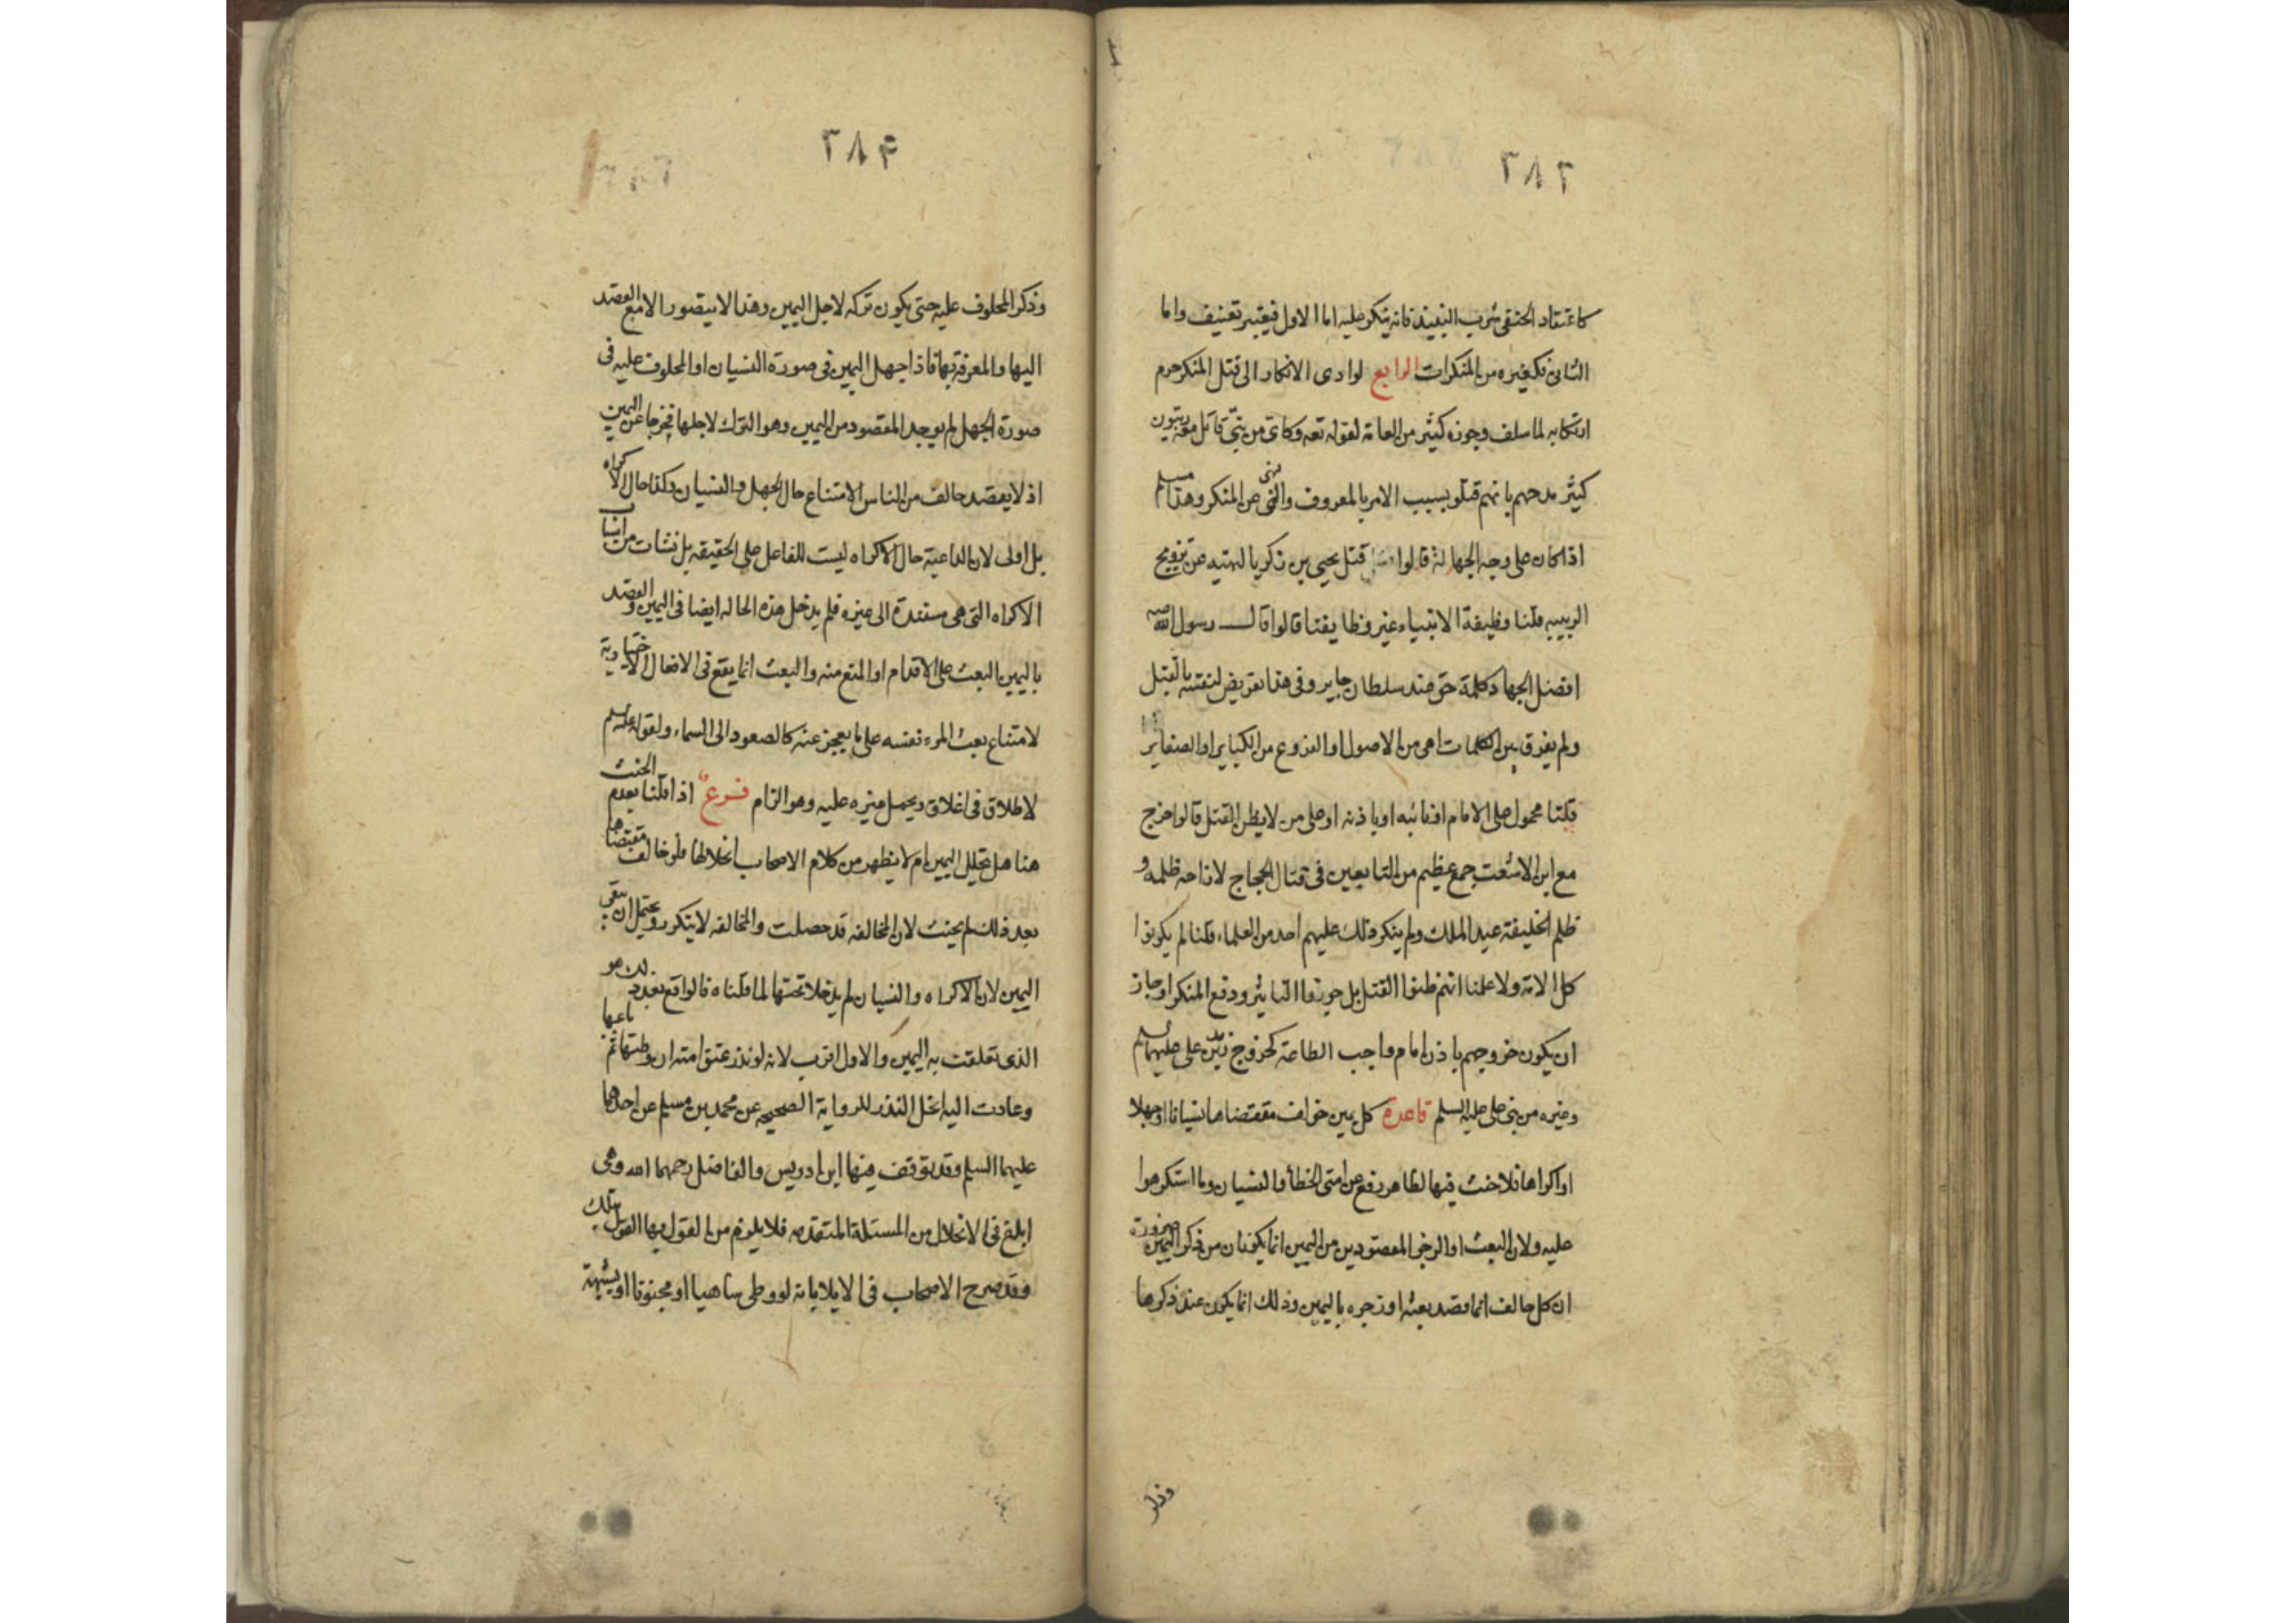 ٢٨٦
كاعتقاد الحنفى شرب النبيذ فانه ينكر عليه اما الاول فيغير تعنيف واما
الثانى فكغيره من المنكرات الرابع لو ادى الانكار الى قتل المنكر حرم
ارتكابه لما سلف وجوزه كثير من العامة لقوله تعه وكاى من نبى قاتل معه ربيون
كثير مدحهم بانهم قتلو بسبب الامر بالمعروف والنهى عن المنكر وهذا مسلم
اذا كان على وجه الجهاد قالوا قتل يحيى بن زكريا لنهيه عن تزويج
الربيبه قلنا وظيفة الانبياء غير وظايفنا قالوا قال رسول الله صه
افضل الجهاد كلمة حق عند سلطان جاير وفى هذا تعريض لنفسه بالقتل
ولم يفرق بين الكلمات اهى من الاصول او الفروع من الكباير او الصغاير
قلنا محمول على الامام او نائبه او باذنه او على من لا يظن القتل قالوا خرج
مع ابن الاشعث جمع عظيم من التابعين فى قتال الحجاج لازاحه ظلمه و
ظلم الخليفة عبد الملك ولم ينكر ذلك عليهم احد من العلماء قلنا لم يكونوا
كل الامة ولا علمنا انهم ظنوا القتل بل جوزوا التاثير ودفع المنكر او جاز
ان يكون خروجهم باذن امام واجب الطاعة كخروج زيد بن على عليهما السلم
وغيره من بنى على عليه السلم قاعدة كل يمين خولف مقتضاها نسيانا او جهلا
او اكراها فلا حنث فيها لظاهر رفع عن امتى الخطأ والنسيان وما استكرهوا
عليه ولان البعث او الزجر المقصودين من اليمين انما يكونان من ذكر اليمين ضرورة
ان كل حالف انما قصد بعثه او زجره باليمين وذلك انما يكون عند ذكرها
وذكر
٢٨٩
وذكر المحلوف عليه حتى يكون تركه لاجل اليمين وهذا لا يتصور الا مع القصد
اليها والمعرفة بها فاذا جهل اليمين فى صورة النسيان او المحلوف عليه فى
صورة الجهل لم يوجد المقصود من اليمين وهو الترك لاجلها فخرجا عن اليمين
اذ لا يقصد حالف من الناس الامتناع حال الجهل والنسيان وكذا حال الاكراه
بل اولى لان الداعية حال الاكراه ليست للفاعل على الحقيقه بل نشات من اسباب
الاكراه التى هى مستندة الى غيره فلم يدخل هذه الحاله ايضا فى اليمين والقصد
باليمين البعث على الاقدام او المنع منه والبعث انما يقع فى الافعال الاختيارية
لامتناع بعث المرء نفسه على ما يعجز عنه كالصعود الى السماء ولقوله عليه السلم
لا طلاق فى اغلاق ويحمل غيره عليه وهو الزام فرع اذا قلنا بعدم الحنث
هنا هل تحلل اليمين ام لا يظهر من كلام الاصحاب انحلالها فلو خالف مقتضاها
بعد ذلك لم يحنث لان المخالفه قد حصلت والمخالفه لا يتكرر ويحتمل ان يبقى
اليمين لان الاكراه والنسيان لم يدخلا تحتها لما قلناه فالواقع بعد ذلك هو
الذى تعلقت به اليمين والاول اقرب لانه لو نذر عتق امته ان وطئها ثم باعها
وعادت اليه انحل النذر للرواية الصحيحه عن محمد بن مسلم عن احدهما
عليهما السلم وقد توقف فيها ابن ادريس والفاضل رحمهما الله وهى
ابلغ فى الانحلال من المسئلة المتقدمه فلا يلزم من القول بها القول بتلك
وقد صرح الاصحاب فى الايلا بانه لو وطى ساهيا او مجنونا او بشبهة